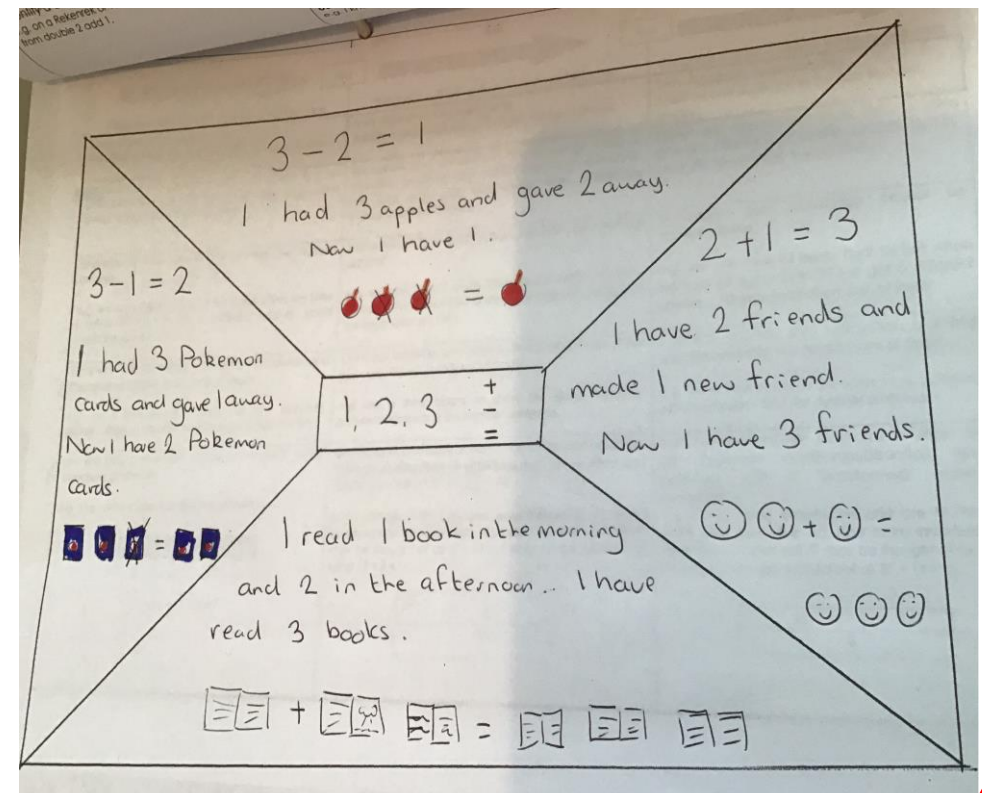 g. on a Rekenrek
from double 2 add 1.
3 - 2 = 1
I had 3 apples and gave 2 away.
Now I have 1.
=
3 - 1 = 2
I had 3 Pokemon
cards and gave 1 away.
Now I have 2 Pokemon
cards.
=
1, 2, 3
+
-
=
2 + 1 = 3
I have 2 friends and
made 1 new friend.
Now I have 3 friends.
+ =
I read 1 book in the morning
and 2 in the afternoon.. I have
read 3 books.
+ =